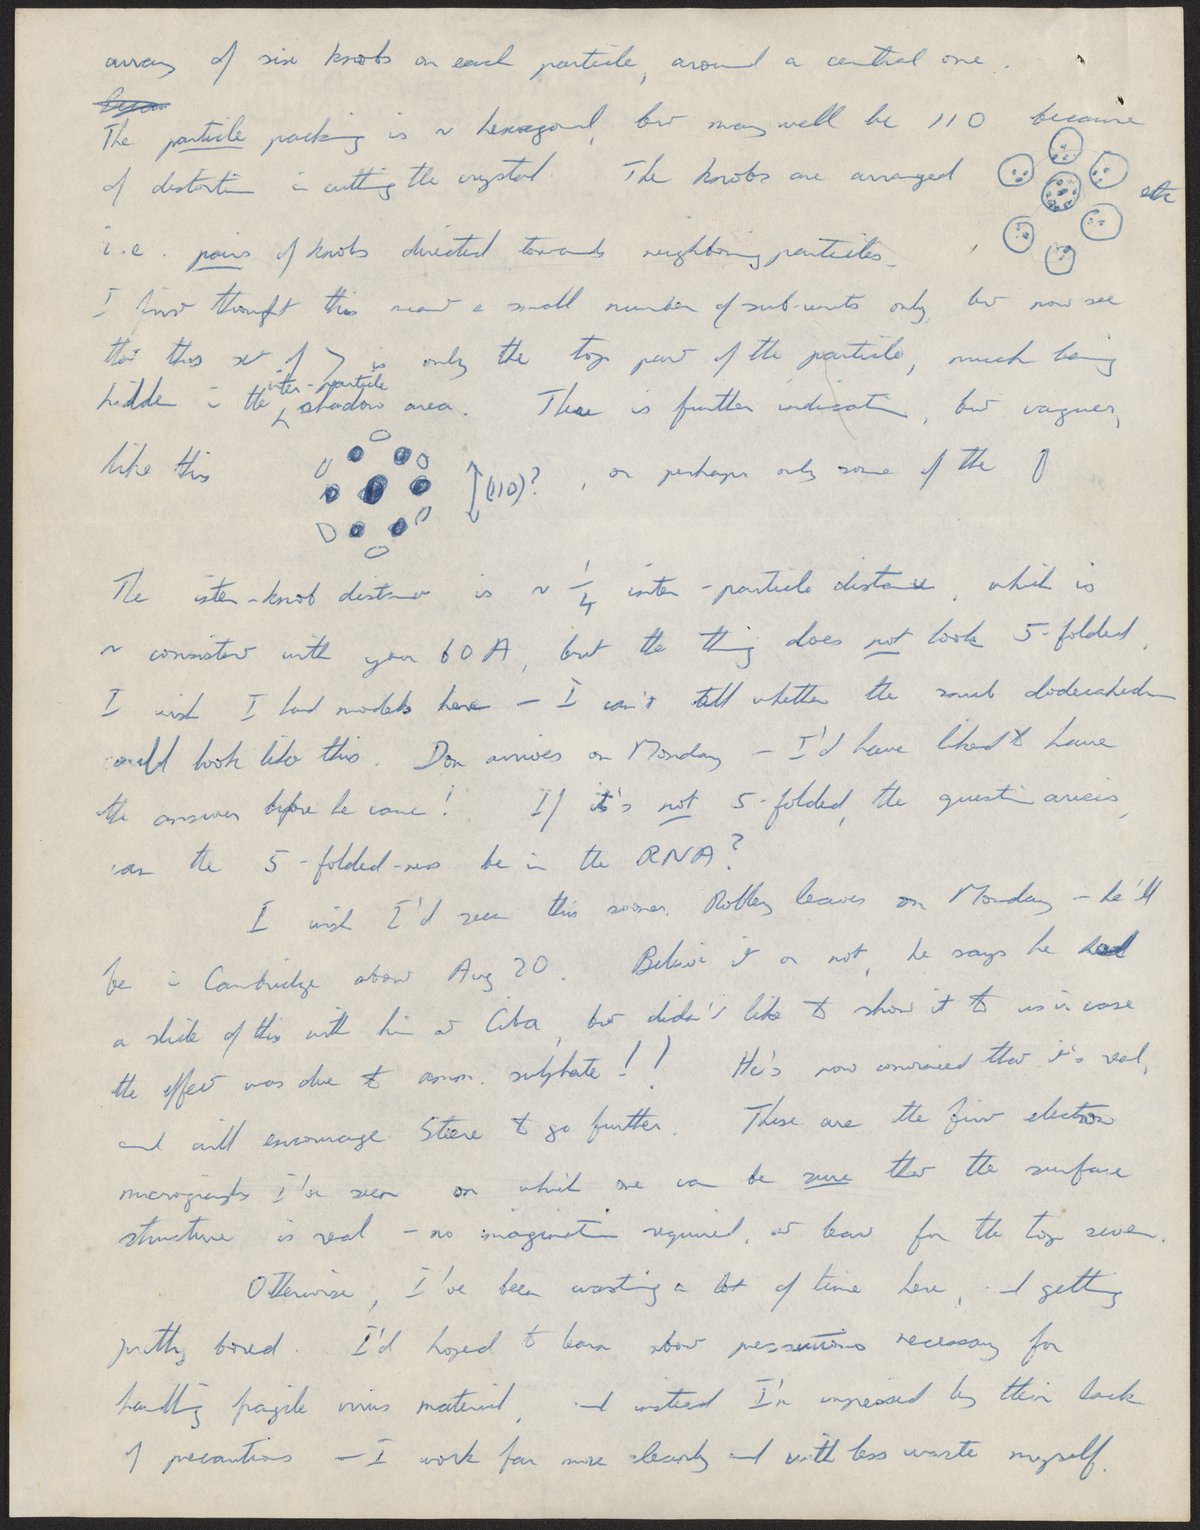 array of six knobs on each particle, around a central one.
The particle packing is ~ hexagonal, but may well be 110 because
of distortion in cutting the crystal. The knobs are arranged
etc
i.e. pairs of knobs directed towards neighboring particles.
I first thought this meant a small number of sub-units only, but now see
that this set of 7 is only the top part of the particle, much being
hidden in the inter-particle shadow area. There is further indication, but vaguer,
like this (110)? , or perhaps only some of the 0
The inter-knob distance is ~ 1/4 inter-particle distance, which is
~ consistent with your 60 A, but the thing does not look 5-folded.
I wish I had models here - I can't tell whether the snub dodecahedron
would look like this. Don arrives on Monday - I'd have liked to have
the answer before he came! If it's not 5-folded, the question arises,
can the 5-folded-ness be in the RNA?
I wish I'd seen this sooner. Robley leaves on Monday - he'll
be in Cambridge about Aug 20. Believe it or not, he says he had
a slide of this with him at Ciba, but didn't like to show it to us in case
the effect was due to amm. sulphate!! He's now convinced that it's real,
and will encourage Steere to go further. These are the first electron
micrographs I've seen on which one can be sure that the surface
structure is real - no imagination required, at least for the top seven.
Otherwise, I've been wasting a lot of time here, and getting
pretty bored. I'd hoped to learn about precautions necessary for
handling fragile virus material, and instead I'm impressed by their lack
of precautions - I work far more cleanly and with less waste myself.